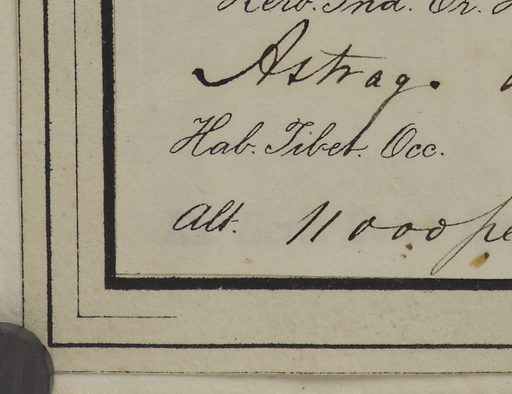 Herb. Ind. Or. H
Astrag.
Hab. Tibet. Occ.
Alt. 11000 pe